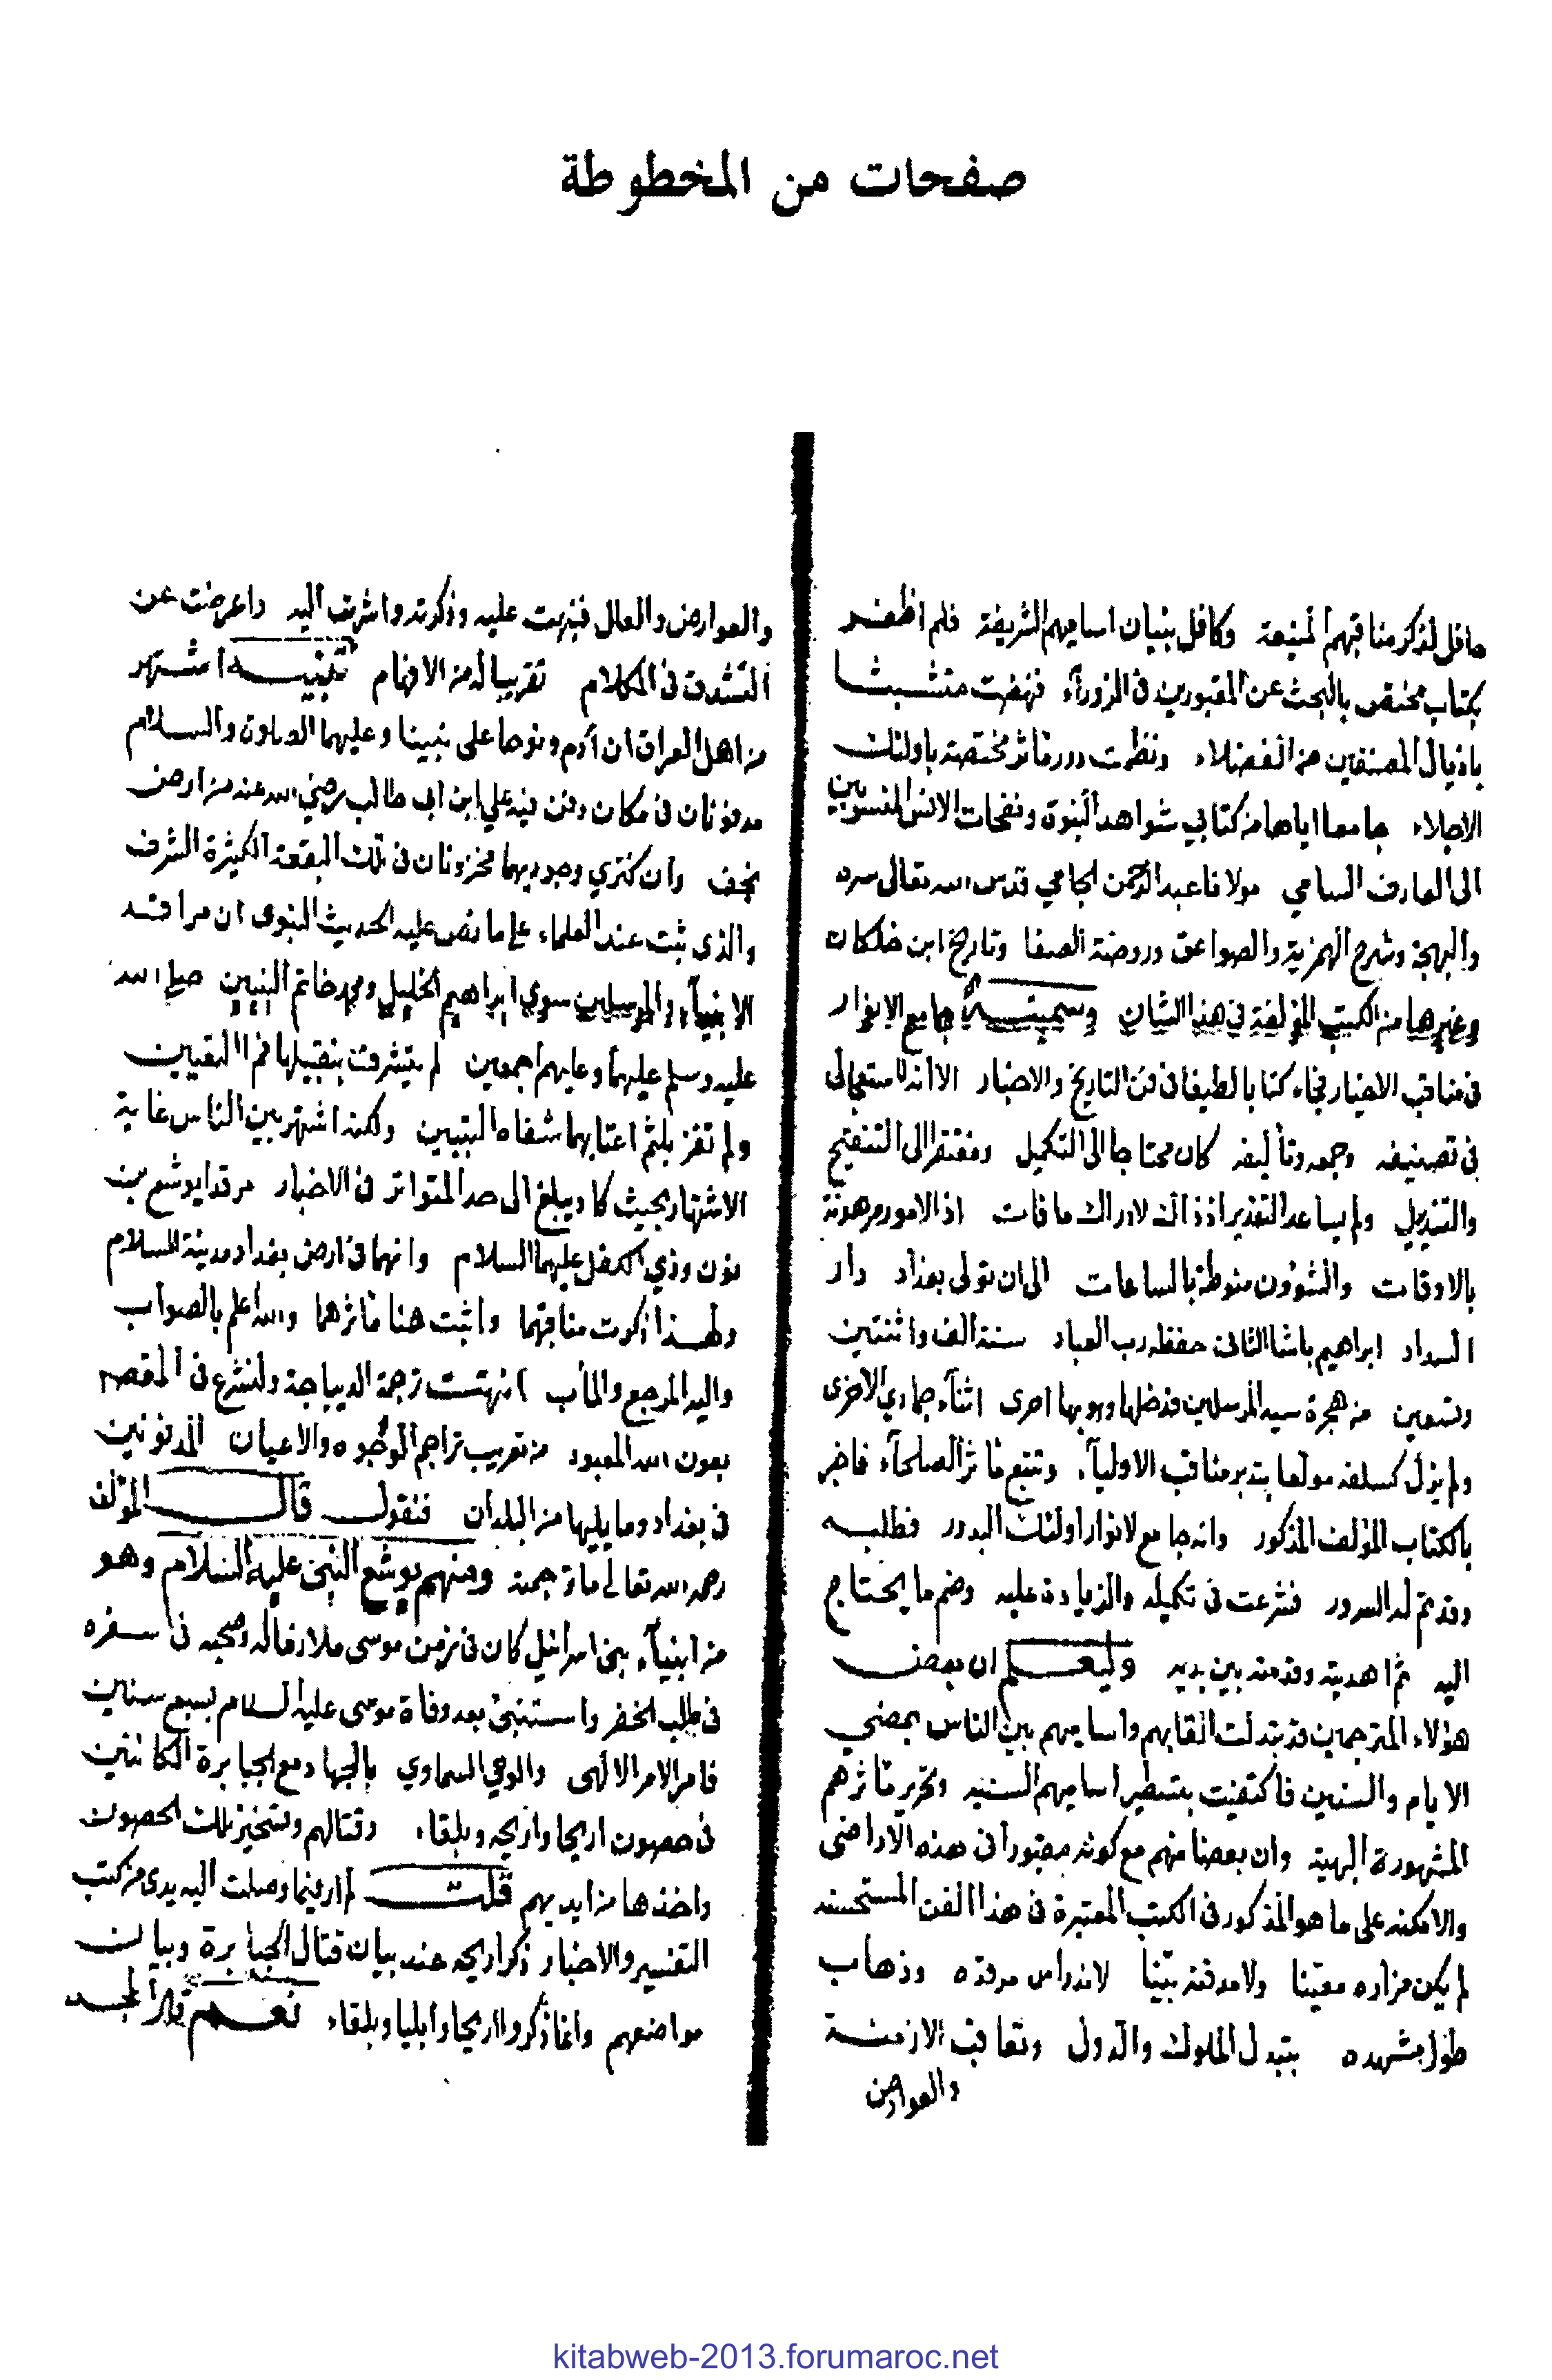 صفحات من المخطوطة
حافل لذكر مناقبهم المنيعة وكافل بتبيان اساميهم الشريفة فلم اظفر
بكتاب مختص بالبحث عن المقبورين فى الزورآء فنهضت متشبثا
باذيال المصنفين من الفضلاء ونظمت درر مآثر مختصة باولئك
الاجلاء جامعا اياها من كتابي شواهد النبوة ونفحات الانس المنسوبين
الى العارف السامي مولانا عبد الرحمن الجامي قدس الله تعالى سره
والبهجة وشرح الهمزية والصواعق وروضة الصفا وتاريخ ابن خلكان
وغيرها من الكتب المؤلفة في هذا الشان وسميته جامع الانوار
فى مناقب الاخيار فجاء كتابا لطيفا فى فن التاريخ والاخبار الا انه لاستعجالى
فى تصنيفه وجمعه وتأليفه كان محتاجا الى التكميل ومفتقرا الى التنقيح
والتذييل ولم يساعد التقدير اذ ذاك لادراك ما فات اذ الامور مرهونة
بالاوقات والشؤون منوطة بالساعات الى ان تولى بغداد دار
السداد ابراهيم باشا الثانى حفظه رب العباد سنة الف واثنتين
وتسعين من هجرة سيد المرسلين اثناء جمادي الاخرى
ولم يزل كسلفه مولعا بتدبر مناقب الاوليآء وتتبع مآثر الصلحآء فاخبر
بالكتاب المؤلف المذكور وانه جامع لانوار اولئك البدور فطلبه
وقد تم له السرور فشرعت فى تكميله والزيادة عليه وضم ما يحتاج
اليه ثم اهديته وقدمته بين يديه وليعلم ان بعض
هؤلاء المترجمين قد تبدلت القابهم واساميهم بين الناس بمضي
الايام والسنين فاكتفيت بتسطير اساميهم السنيه وتحرير مآثرهم
المشهورة البهية وان بعضا منهم مع كونه مقبورا فى هذه الاراضى
والامكنه على ما هو المذكور فى الكتب المعتبرة فى هذا الفن المستحسنه
لم يكن مزاره معيّنا ولا مدفنه بيّنا لاندراس مرقده وذهاب
طول مشهده بتبدل الملوك والدول وتعاقب الازمنة
والعوارض
والعوارض والعلل فنبهت عليه وذكرته واشرت اليه واعرضت عن
التشدق فى الكلام تقريبا له من الافهام تنبيه اشتهر
من اهل العراق ان آدم ونوحا على نبينا وعليهما الصلوة والسلام
مدفونان فى مكان دفن فيه علي ابن ابى طالب رضي الله عنه من ارض
نجف وان كنزي وجوديهما مخزونان فى تلك البقعة الكثيرة الشرف
والذى ثبت عند العلماء على ما نص عليه الحديث النبوى ان مراقد
الانبيآء والمرسلين سوى ابراهيم الخليل ومحمد خاتم النبيين صلى الله
عليه وسلم عليهما وعليهم اجمعين لم يتشرف بتقبيلها فم اليقين
ولم تفز بلثم اعتابهما شفاه التبيين ولكنه اشتهر بين الناس غاية
الاشتهار بحيث كاد يبلغ الى حد المتواتر فى الاخبار مرقدا يوشع بن
نون وذي الكفل عليهما السلام وانهما فى ارض بغداد مدينة السلام
ولهذا ذكرت مناقبهما واثبت هنا مآثرهما والله اعلم بالصواب
واليه المرجع والمأب انتهت ترجمة الديباجة ولنشرع فى المقصد
بعون الله المعبود من تعريب تراجم الوجوه والاعيان المدفونين
فى بغداد وما يليها من البلدان فنقول قال المؤلف
رحمه الله تعالى ما ترجمته ومنهم يوشع النبى عليه السلام وهو
من انبيآء بنى اسرائيل كان فى زمن موسى ملازما له وصحبه فى سفره
فى طلب الخضر واستنبئ بعد وفاة موسى عليه السلام بسبع سنين
فامر الامر الالهى والوحي السماوي بالجهاد مع الجبابرة الكائنين
فى حصون اريحا واريحه وبلقاء وقتالهم وتسخير تلك الحصون
واخذها من ايديهم قلت لم ار فيما وصلت اليه يدى من كتب
التفسير والاخبار ذكر اريحه عند بيان قتال الجبابرة وبيان
مواضعهم وانما ذكروا اريحا وايليا وبلقاء نعم
kitabweb-2013.forumaroc.net